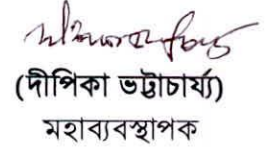 (দীপিকা ভট্টাচার্য্য)
মহাব্যবস্থাপক